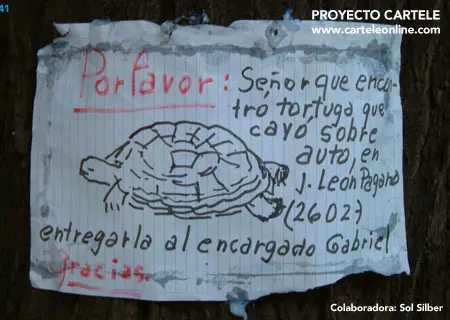 41
PROYECTO CARTELE
www.carteleonline.com
Por favor: Señor que encon-
tró tortuga que
cayó sobre
auto, en
J. Leon Pagano
(2602)
entregarla al encargado Gabriel
Gracias.
Colaboradora: Sol Silber